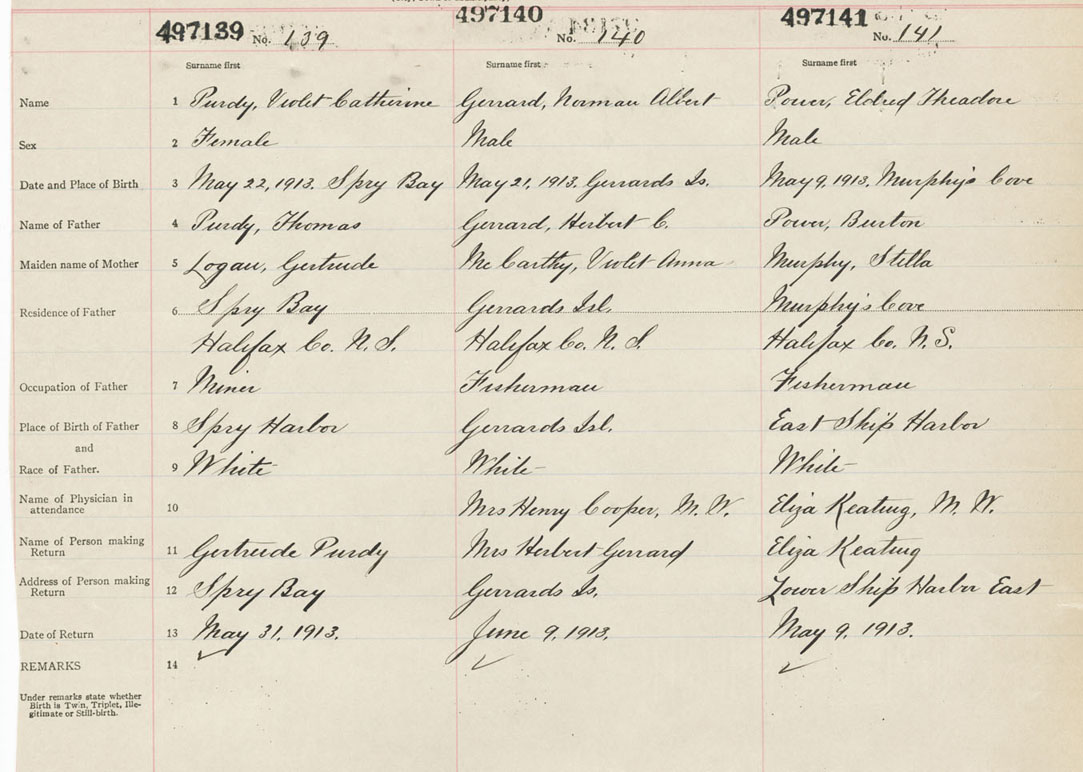 497139 No. 139 497140 No. 140 497141 No. 141
Surname first Surname first Surname first
Name 1 Purdy, Violet Catherine Gerrard, Norman Albert Power, Eldred Theadore
Sex 2 Female Male Male
Date and Place of Birth 3 May 22, 1913. Spry Bay May 21, 1913. Gerrards Is. May 9, 1913. Murphy's Cove
Name of Father 4 Purdy, Thomas Gerrard, Herbert C. Power, Burton
Maiden name of Mother 5 Logan, Gertrude Mc Carthy, Violet Anna Murphy, Stella
Residence of Father 6 Spry Bay Gerrards Isl. Murphy's Cove
Halifax Co. N. S. Halifax Co. N. S. Halifax Co. N. S.
Occupation of Father 7 Miner Fisherman Fisherman
Place of Birth of Father 8 Spry Harbor Gerrards Isl. East Ship Harbor
and
Race of Father. 9 White White White
Name of Physician in
attendance 10 Mrs Henry Cooper, M. W. Eliza Keating, M. W.
Name of Person making
Return 11 Gertrude Purdy Mrs Herbert Gerrard Eliza Keating
Address of Person making
Return 12 Spry Bay Gerrards Is. Lower Ship Harbor East
Date of Return 13 May 31, 1913. June 9, 1913. May 9, 1913.
REMARKS 14
Under remarks state whether
Birth is Twin, Triplet, Ille-
gitimate or Still-birth.